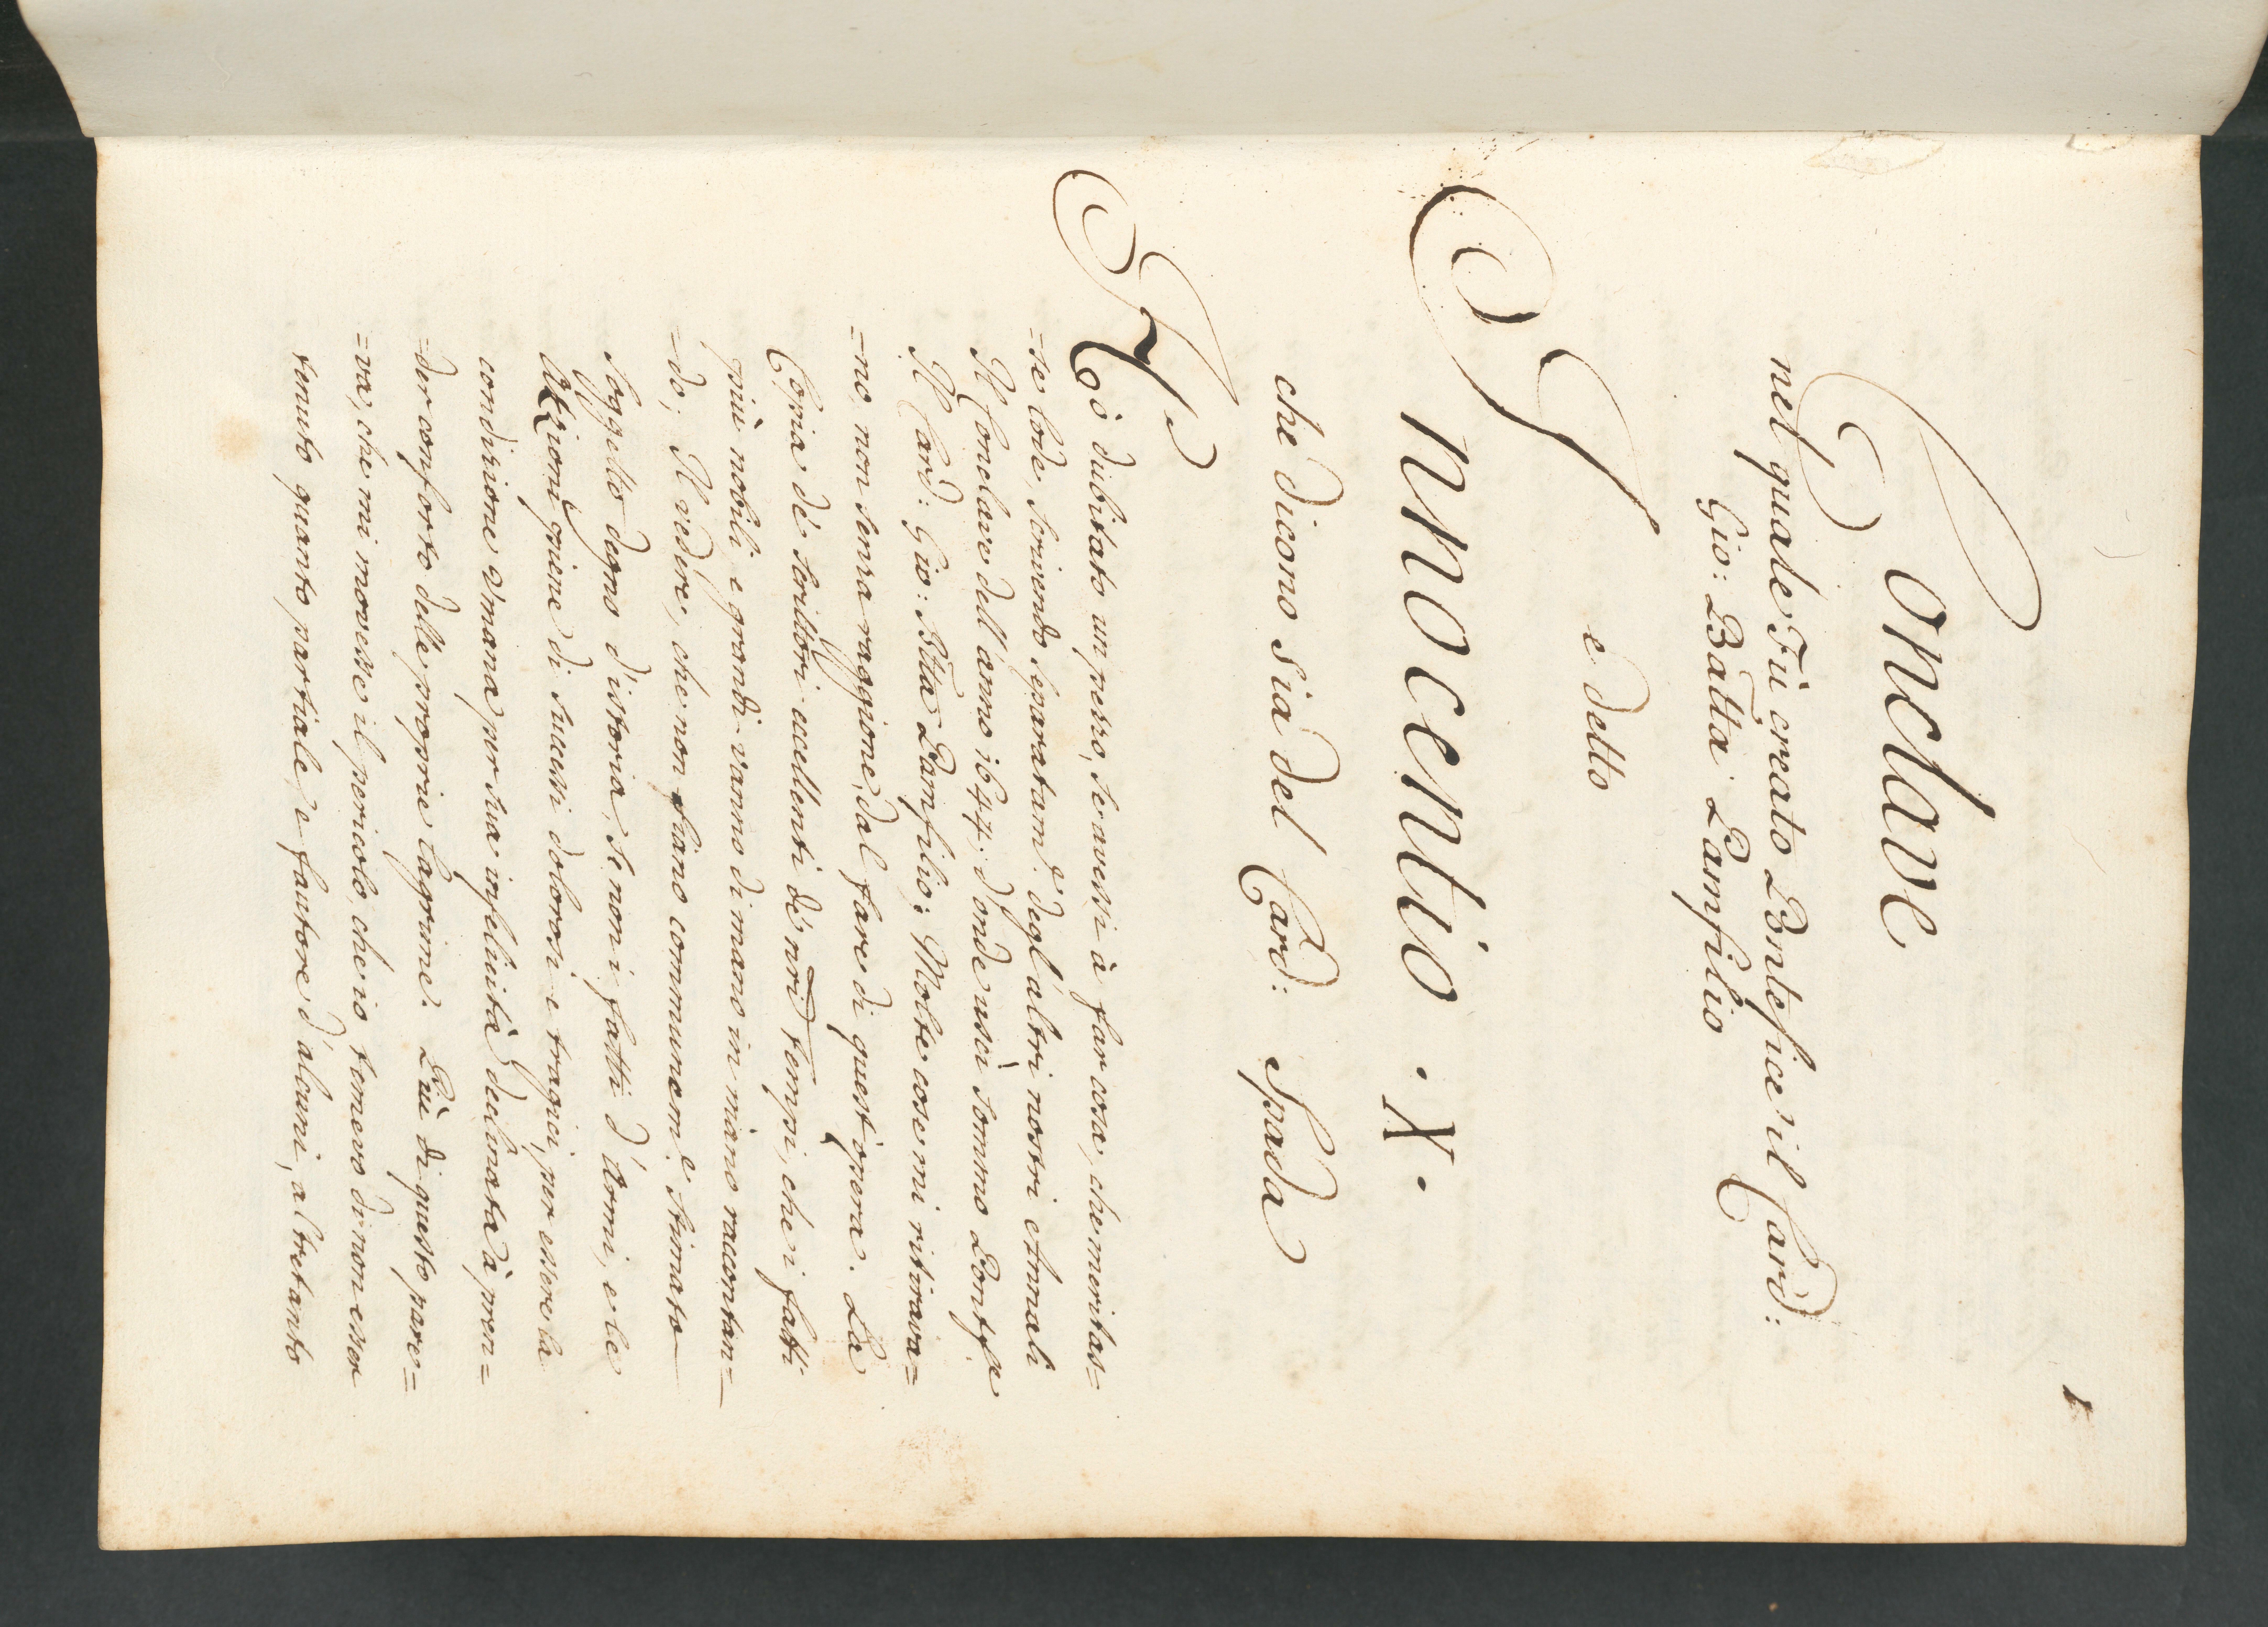 1
Conclave
nel quale Fù creato Pontefice il Card:
Gio: Batta Pamfilio
e detto
Innocentio . X .
che dicono sia del Card: Spada
Hò dubitato un pezzo, se avessi à far cosa, che meritas=
=se lode, scrivendo separatam.e degl'altri nostri Annali
Il Conclave dell'anno 1644; d'onde uscì sommo Pontefe
Il Card: Gio: Btta Pamfilio: Molte cose mi ritirava=
=no, non senza raggione, dal fare di quest'opera. La
Copia dè scrittori eccellenti dè nri tempi, che i fatti
più nobili e grandi vanno di mano in mano raccontan=
=do; Il vedere, che non siano communem.e stimato
soggetto degno d'istoria, se non i fatti d'Armi, e le
Attioni piene di successi dolorosi e tragici, per essere la
condizione umana per sua infelicità declinata à pren=
=der conforto dalle proprie lagrime. Più di questo pare=
=va, che mi movesse il pericolo, che io temevo di non esser
tenuto quanto partiale, e fautore d'alcuni, altretanto